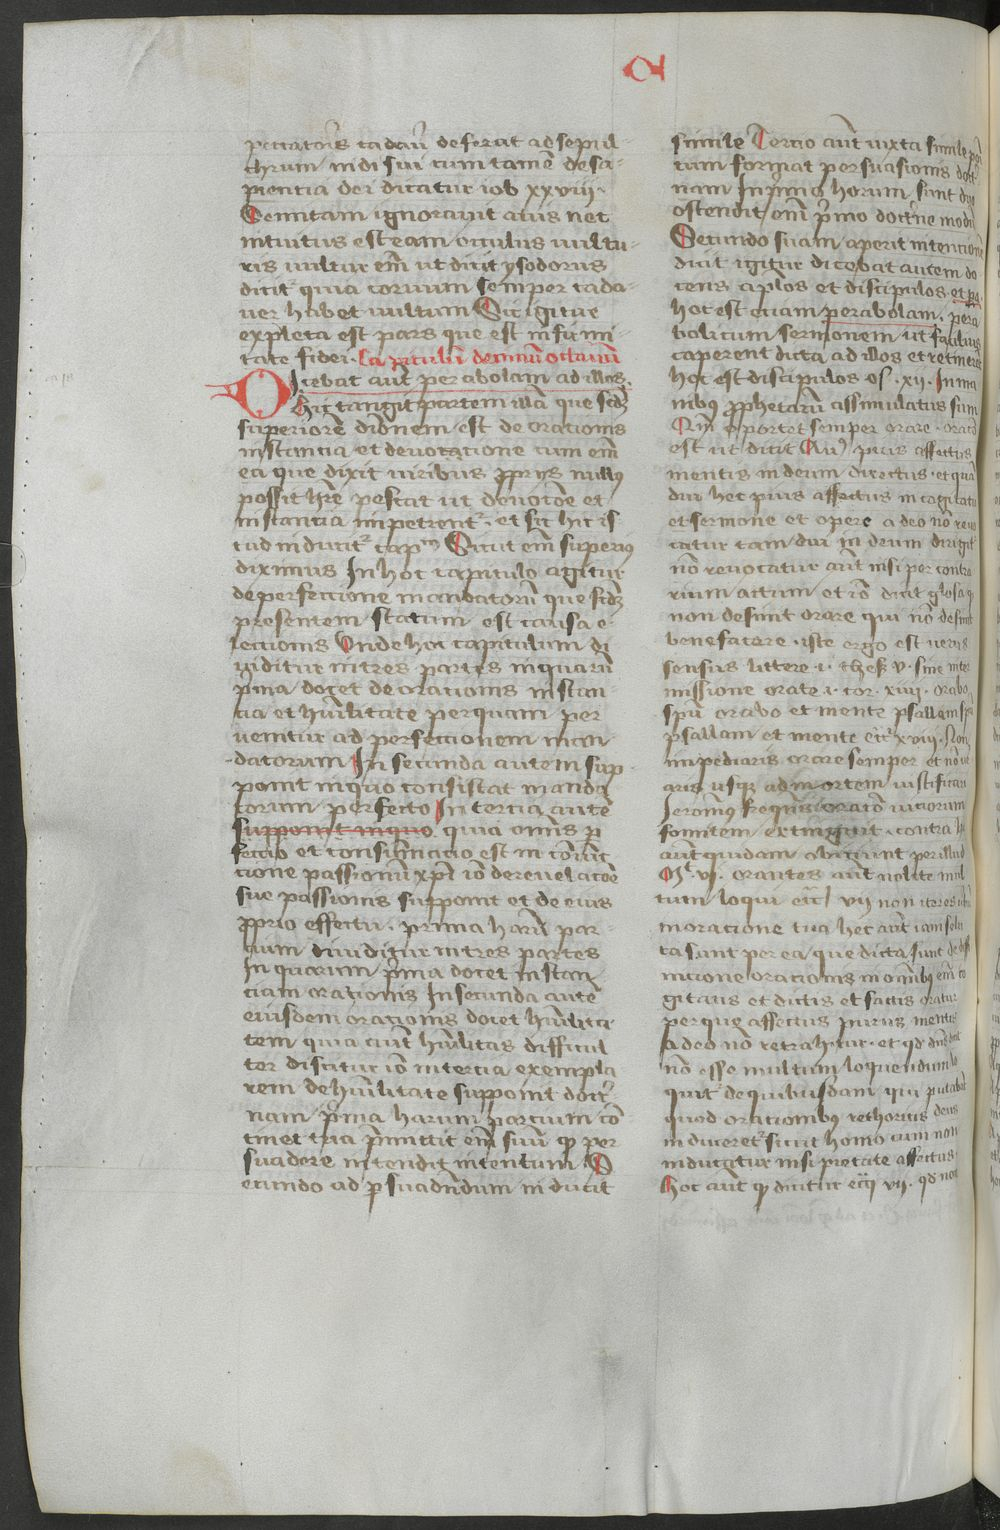 peccatoris cadau᷑ deferat ad sepul-
chrum nidi sui cum tamē de sa-
pientia dei dicatur iob xxviij.
Semitam ignorauit auis nec
intuitus est eam occulus uultu-
ris uultur em̄ ut dicit ysodorus
dicit᷑ quia coruum semper cada-
uer habet uultum Sic igitur
expleta est pars que est in firmi-
tate fidei. Capitulū decimū octauū
Dicebat aūt perabolam ad illos.
Hic tangit partem illā que scd̄ȝ
superiorē diōnem est de orationis
instantia et deuotatione cum em̄
ea que dixit uiribus ꝓprijs nullꝰ
possit hr̄e pescat ut deuotōe et
instantia impetrent᷑. et sic hic is-
tud inducit᷑ cap̄m Sicut em̄ superiꝰ
diximus In hoc capitulo agitur
de perfectione mandatorū que scd̄ȝ
presentem statum est causa e-
lectionis Unde hoc capitulum di
uiditur in tres partes in quarū
p̄ma docet de orationis instan-
tia et hūilitate per quam per
uenitur ad perfectionem man-
datorum In secunda autem sup-
ponit in quo consistat manda
torum perfectio In tercia autē
supponit in quo quia om̄is ꝑ
fectio et consūmatio est in cōiūc
tione passionū xp̄i iō de reuelacōe
sue passionis supponit et de eius
ꝓprio effectu. prima harū par-
cium diuiditur in tres partes
In quarum p̄ma docet instan
ciam orationis In secunda autē
eiusdem orationis docet hūilita-
tem quia aūt hūilitas difficul
ter discitur iō in tercia exempla
rem de hūilitate supponit doct᷑-
nam p̄ma harum partium cō
tinet tria p̄mittit em̄ suū ꝙ per
suadere intendit intentum S
ecundo ad ꝑsuadēdum inducit
simile Tercio aūt iuxta simile
format persuasionis
nam In p̄mo horum sunt duo
ostendit em̄ p̄mo doct᷑ne modū
Secundo suam aperit intentionē
dicit igitur dicebat autem do-
cens ap̄los et discipulos. et pa.
hoc est etiam perabolam. pera
bolicum sermonem ut facilius
caperent dicta ad illos et retinerēt
hoc est discipulos os̄. xij. In ma
nibꝰ ꝓphetarū assimulatus sum
Qm̄ oportet semper orare. oratō
est ut dicit Auḡ pius affectus
mentis in deum directus. et quā
diu hec pius affectus in cogitatu
et sermone et opere a deo nō reuo
catur tam diu in deum dirigit᷑
nō reuocatur aūt nisi per contra
rium actum et iō dicit glosa ꝙ
non desinit orare qui nō desinit
benefacere. iste ergo est uerus
sensus littere i. thes̄ v. sine inter
missione orate i. cor. xiiij. orabo
spū orabo et mente psallam spū
psallam et mente ecc̄i xviij. Non
impediaris orare semper et nō
aris usqꝫ ad mortem iustificari
Jeronimꝰ frequēs oratō uiciorum
fomitem extinguit. contra
aūt quidam obiciunt per illud
Mt̄ vj. orantes aūt nolite mul
tum loqui ecc̄i vij non iteres
in oratione tua hec aūt iam solu
ta sunt per ea que dicta sunt de
nitione orationis in om̄ibꝰ em̄ co
gitatis et dictis et factis oratur
per que affectus purus mentis
a deo nō retrahitur. et qd̄ dn̄s
nō esse multum loquendum lo
quit᷑ de quibusdam qui putabāt
quod orationibꝰ rethoricis deus
induceret᷑ sicut homo cum non
inducitur nisi pietate affectus
Hoc aūt ꝙ dicitur ecc̄i vij. qd̄ non